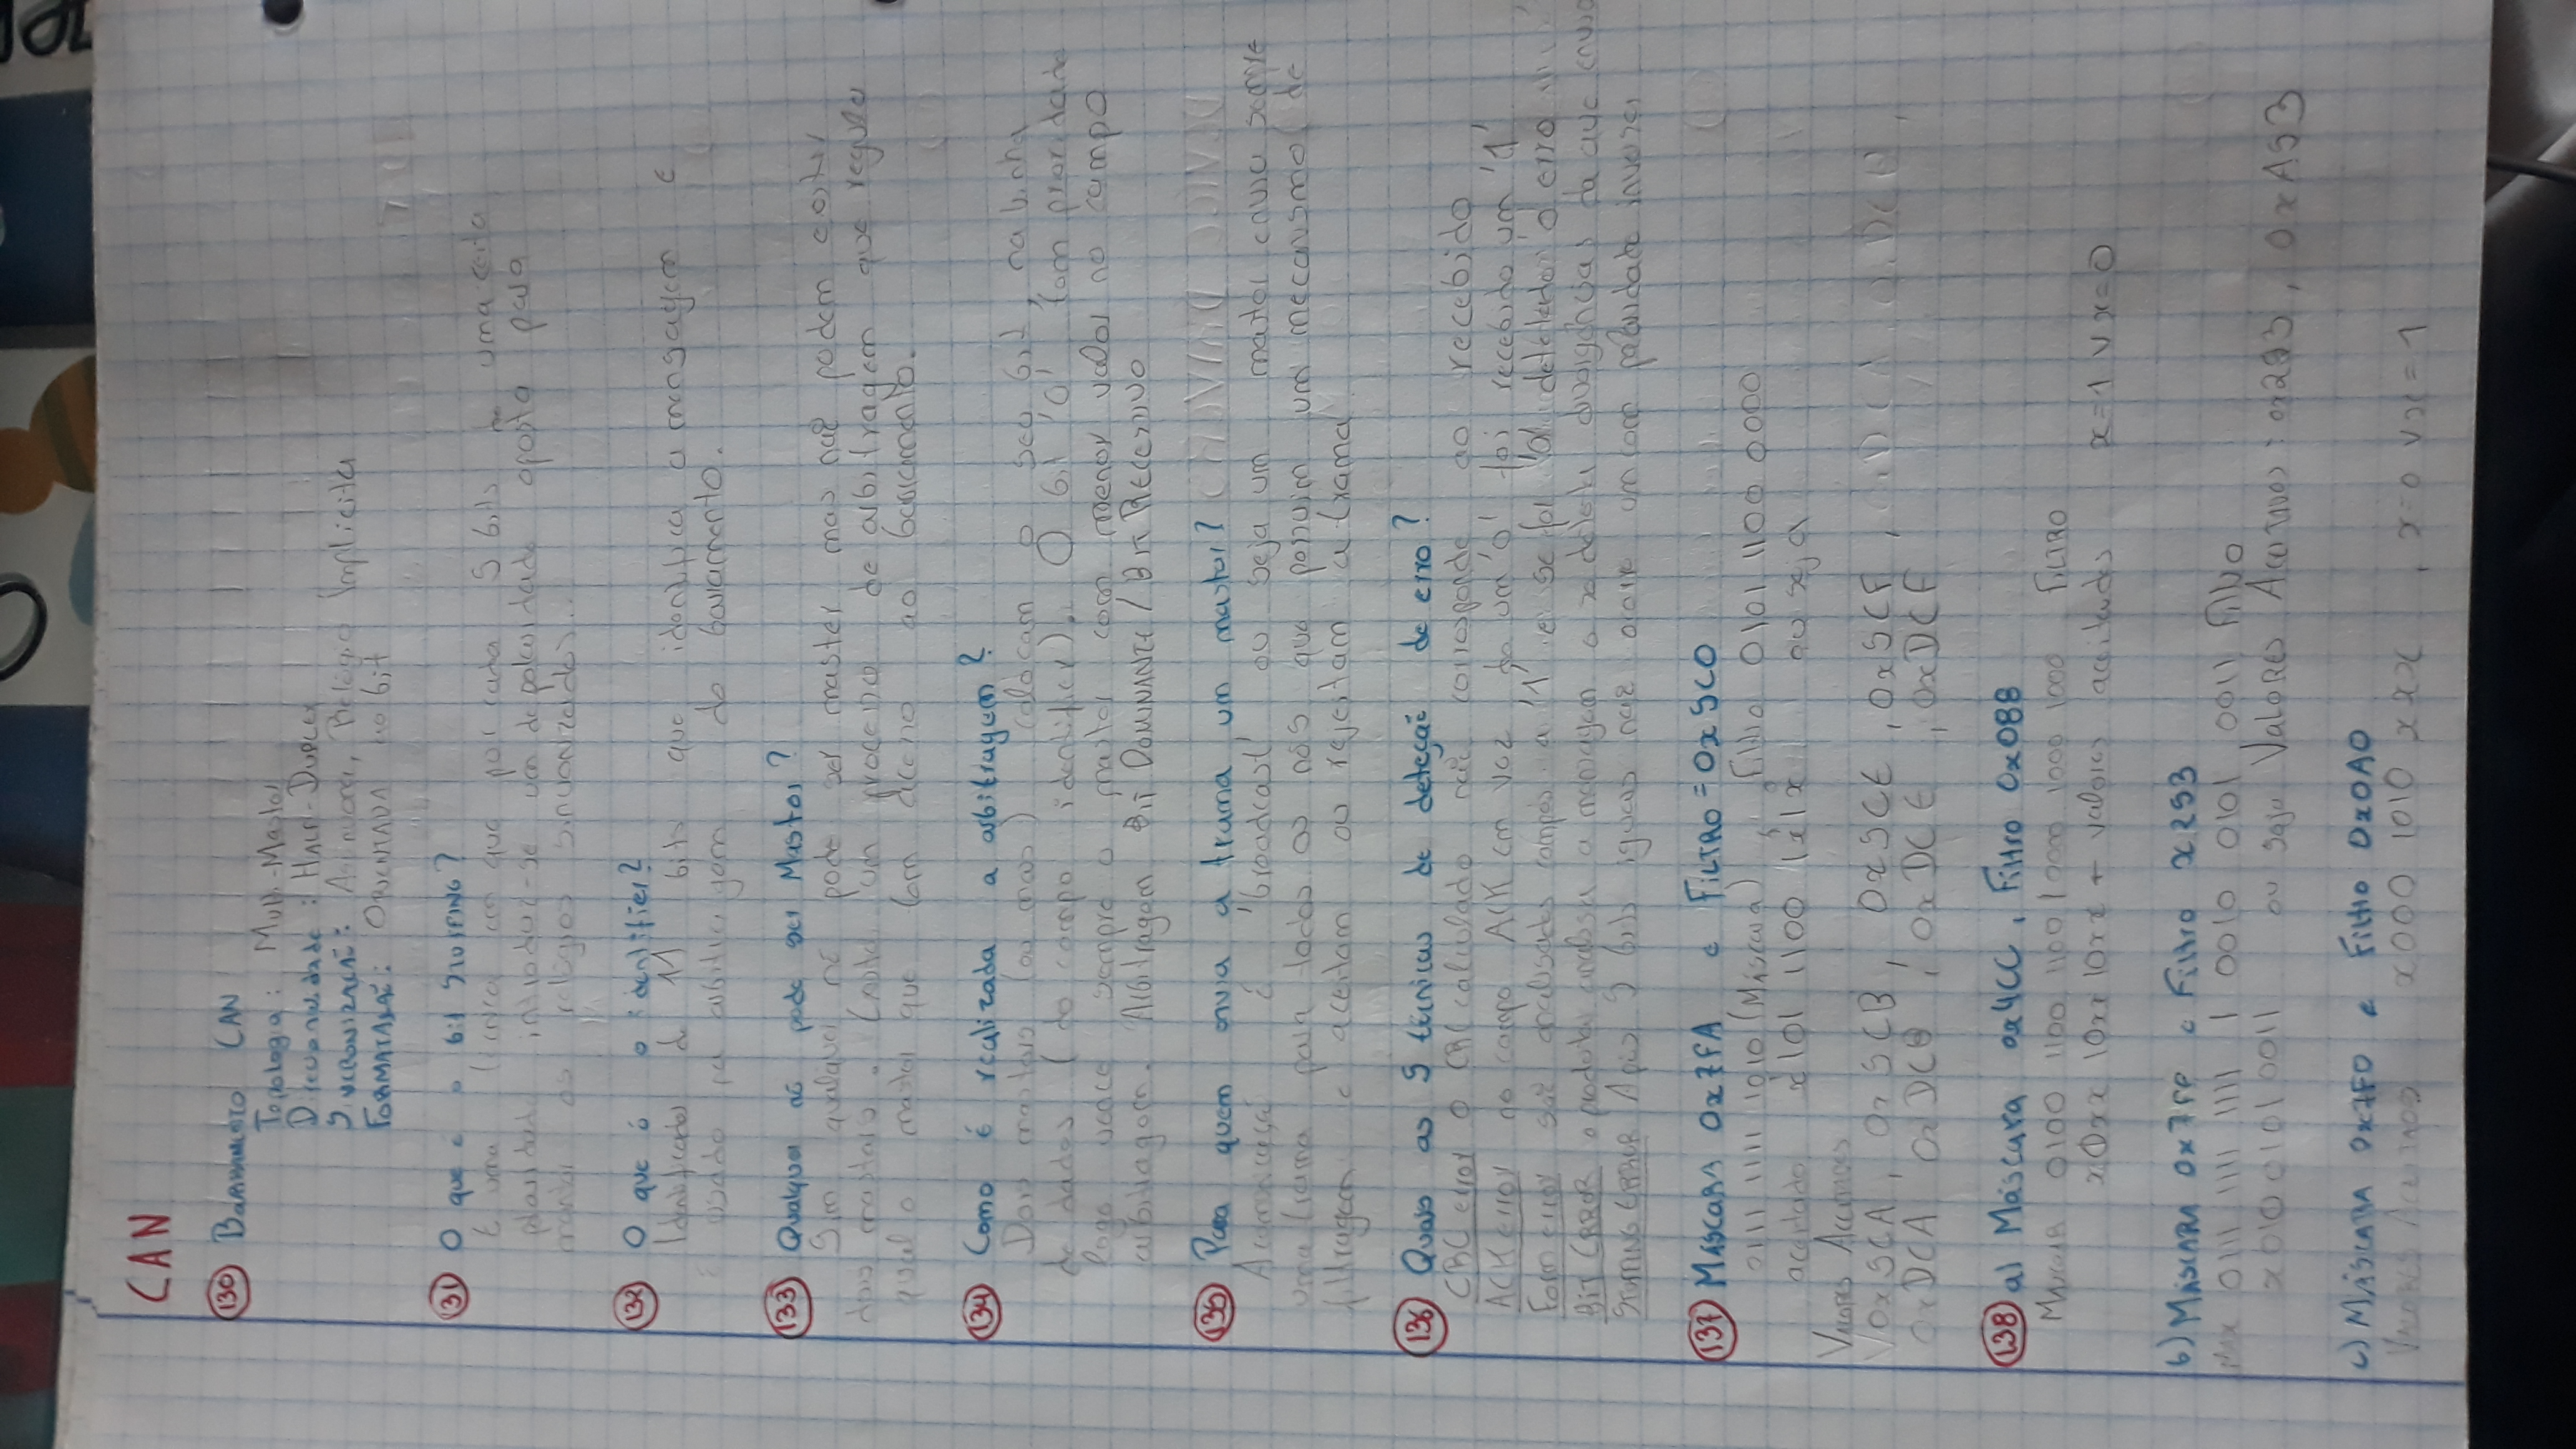 CAN
130 Barramento CAN
Topologia: Multi-Master
Direcionalidade: Half-Duplex
Sincronização: Assíncrona, Relógio Implícito
Formatação: Orientada ao bit
131 O que é o bit Stuffing?
É uma técnica em que por cada 5 bits de uma certa
polaridade introduz-se um de polaridade oposta para
manter os relógios sincronizados...
132 O que é o identifier?
Identificador de 11 bits que identifica a mensagem e
é usado na arbitragem do barramento.
133 Qualquer nó pode ser Master?
Sim qualquer nó pode ser master mas não podem existir
dois masters. Existe um processo de arbitragem que regula
qual o master que tem acesso ao barramento.
134 Como é realizada a arbitragem?
Dois masters (ou mais) colocam o seu bit, na linha
de dados (do campo identifier). O bit '0' tem prioridade
logo vence sempre o master com menor valor no campo
arbitragem. Arbitragem Bit Dominante / Bit Recessivo
135 Para quem envia a trama, um master?
A comunicação é 'broadcast' ou seja um master envia sempre
uma trama para todos os nós que possuim um mecanismo de
filtragem e aceitam ou rejeitam a trama
136 Quais as 5 técnicas de deteção de erro?
CRC error o CRC calculado não corresponde ao recebido
ACK error no campo ACK em vez de um '0' foi recebido um '1'
Form error são analisados campos a '1' e se for '0' detetado o erro
Bit Error o produtor analisa a mensagem e se deteta divergências da que enviou
Stuffing Error Após 5 bits iguais não ocorre um com polaridade inversa
137 Máscara 0x7FA e Filtro = 0x5C0
0111 1111 1010 (Máscara), Filtro 0101 1100 0000
aceitado x101 1100 1x1x ou seja
Valores Aceitados
0x5CA, 0x5CB, 0x5CE, 0x5CF,
0xDCA 0xDCB, 0xDCE, 0xDCF
138 a) Máscara 0x4CC, Filtro 0x088
Máscara 0100 1100 1100 | 0000 1000 1000 Filtro
x0xx 10xx 10xx + valores aceitados x=1 v x=0
b) Máscara 0x7FF e Filtro x253
0111 1111 1111 | 0010 0101 0011 Filtro
x010 0101 0011 ou seja Valores Aceitados: 0x253, 0xA53
c) Máscara 0x7F0 e Filtro 0x0A0
Valores Aceitados x000 1010 xxx, x=0 v x=1